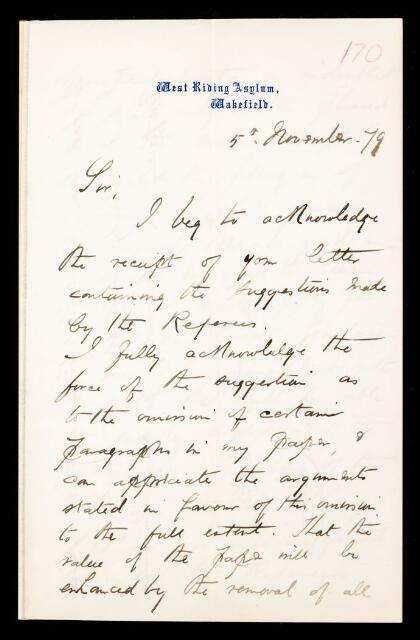 170
West Riding Asylum,
Wakefield.
5th November - 79
Sir,
I beg to acknowledge
the receipt of your letter
containing the suggestions made
by the Referees.
I fully acknowledge the
force of the suggestion as
to the omission of certain
paragraphs in my paper, &
can appriciate the arguments
stated in favour of this omission
to the full extent. That the
value of the paper will be
enhanced by the removal of all